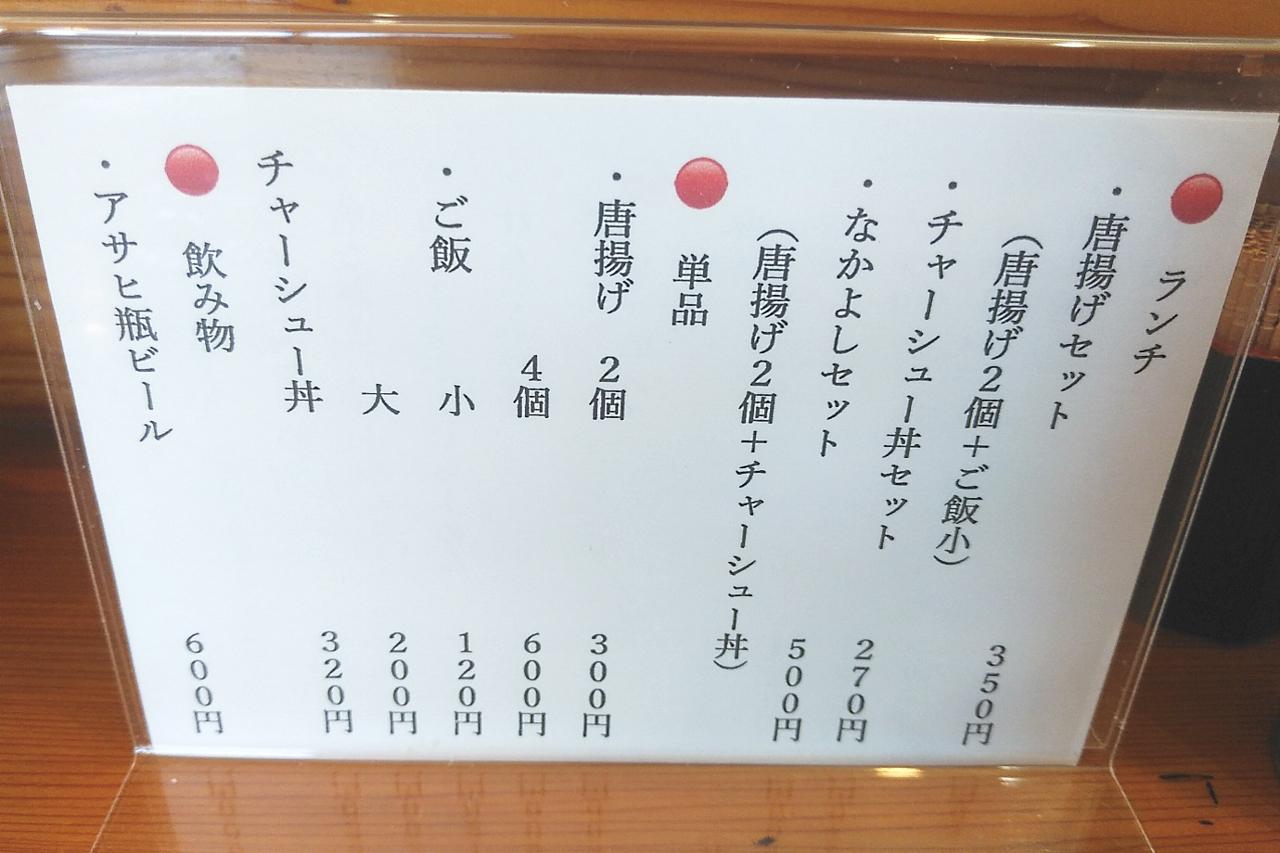 ランチ
・唐揚げセット
（唐揚げ2個＋ご飯小） 350円
・チャーシュー丼セット 270円
・なかよしセット 500円
（唐揚げ2個＋チャーシュー丼）
単品
・唐揚げ 2個 300円
4個 600円
・ご飯 小 120円
大 200円
チャーシュー丼 320円
飲み物
・アサヒ瓶ビール 600円